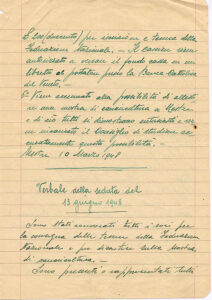 £ 200 (duecento) per iscrizione e Tessera della
Federazione Nazionale. — Il cassiere viene
autorizzato a versare il fondo cassa in un
libretto al portatore presso la Banca Cattolica
del Veneto. —
Viene esaminata la possibilità di allestire
una mostra di canaricoltura a Mestre
e di ciò tutti si dimostrano entusiasti e viene
incaricato il Consiglio di studiare ed
accuratamente questa possibilità. —
Mestre 10 Marzo 1948
Verbale della seduta del
13 giugno 1948
Sono stati convocati tutti i soci per
la consegna delle Tessere della Federazione
Nazionale e per discutere sulla Mostra
di canaricoltura. —
Sono presenti o rappresentati tutti